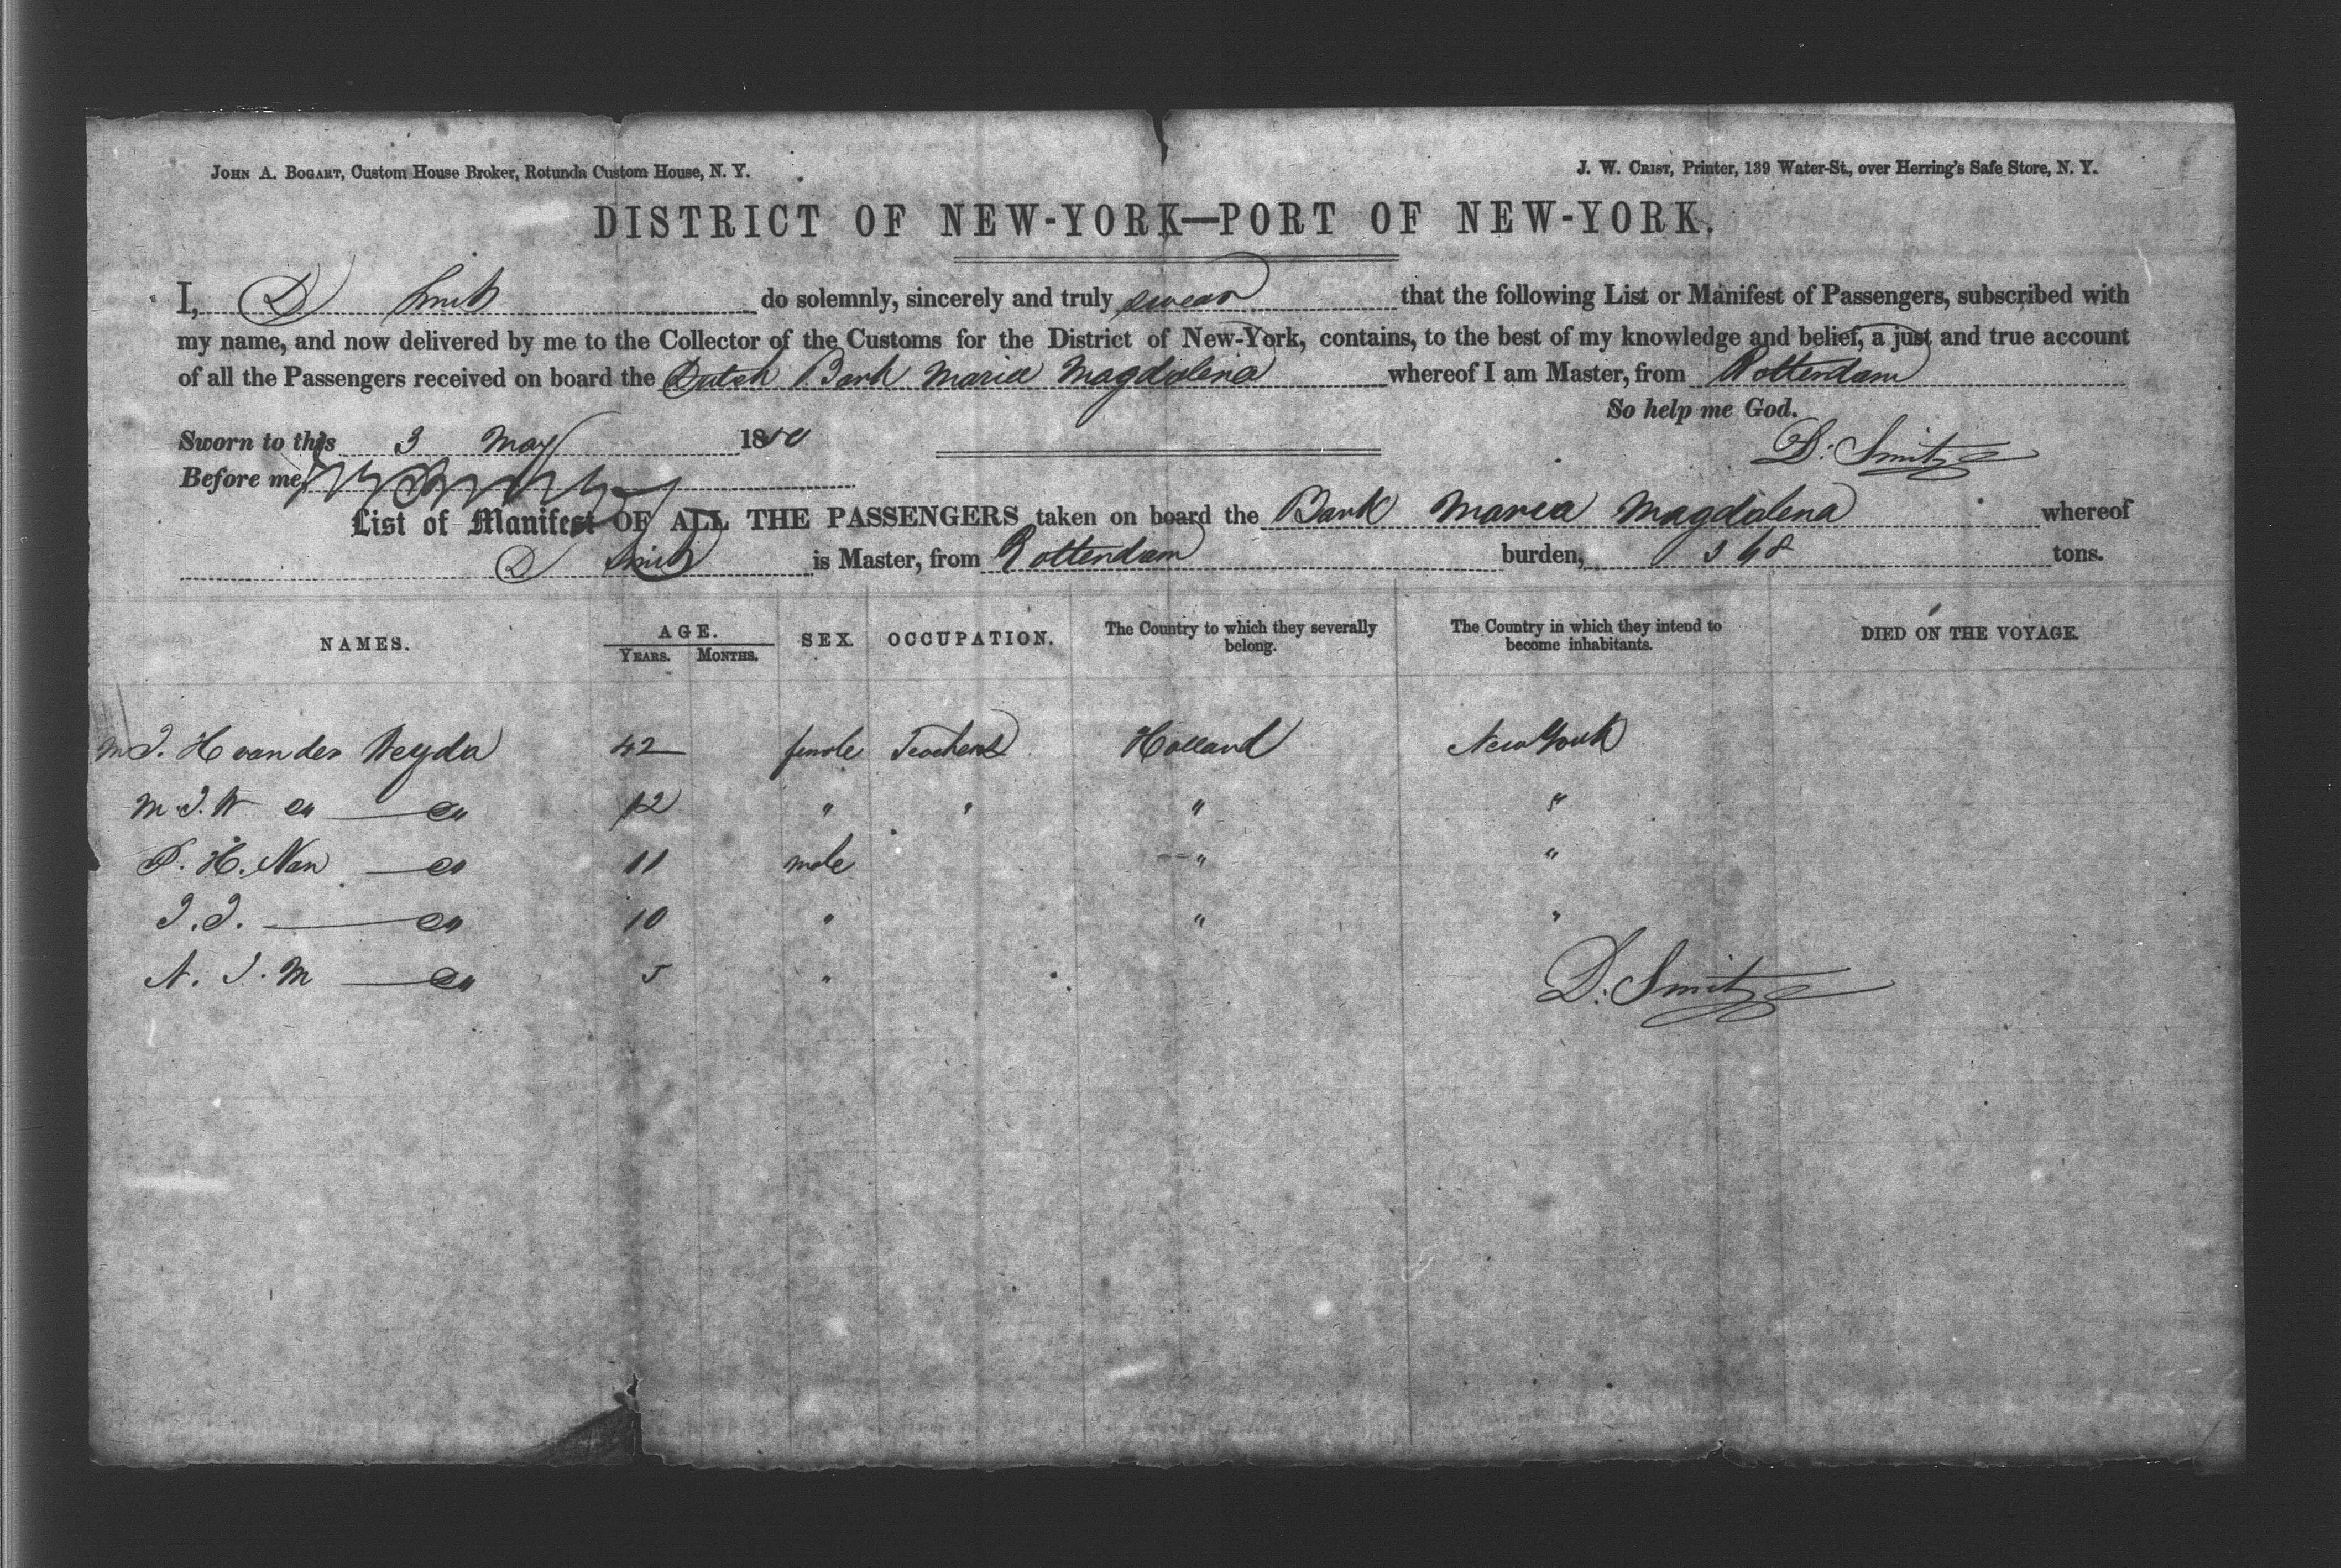 JOHN A. BOGART, Custom House Broker, Rotunda Custom House, N. Y.
J. W. CRIST, Printer, 139 Water-St., over Herring's Safe Store, N. Y.
DISTRICT OF NEW-YORK—PORT OF NEW-YORK.
I, D Smit do solemnly, sincerely and truly swear that the following List or Manifest of Passengers, subscribed with
my name, and now delivered by me to the Collector of the Customs for the District of New-York, contains, to the best of my knowledge and belief, a just and true account
of all the Passengers received on board the Dutch Bark Maria Magdalena whereof I am Master, from Rotterdam
So help me God.
Sworn to this 3 May 18
D: Smit
Before me,
List of Manifest OF ALL THE PASSENGERS taken on board the Bark Maria Magdalena whereof
D Smit is Master, from Rotterdam burden, 368 tons.
NAMES. AGE. SEX. OCCUPATION. The Country to which they severally belong. The Country in which they intend to become inhabitants. DIED ON THE VOYAGE.
YEARS. MONTHS.
J. H van der Weyda 42 female Teacher Holland New York
M. J. W " — " 12 " " " "
P. H. Nan — " 11 male " "
J. J. — " 10 " " "
A. J. M — " 5 "
D: Smit